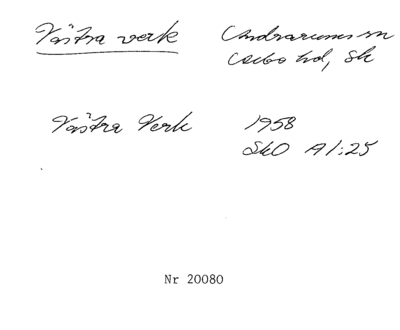 Västra verk Andrarums sn
Albo hd, Sk
Västra Verk 1958
SkO A1:25
Nr 20080